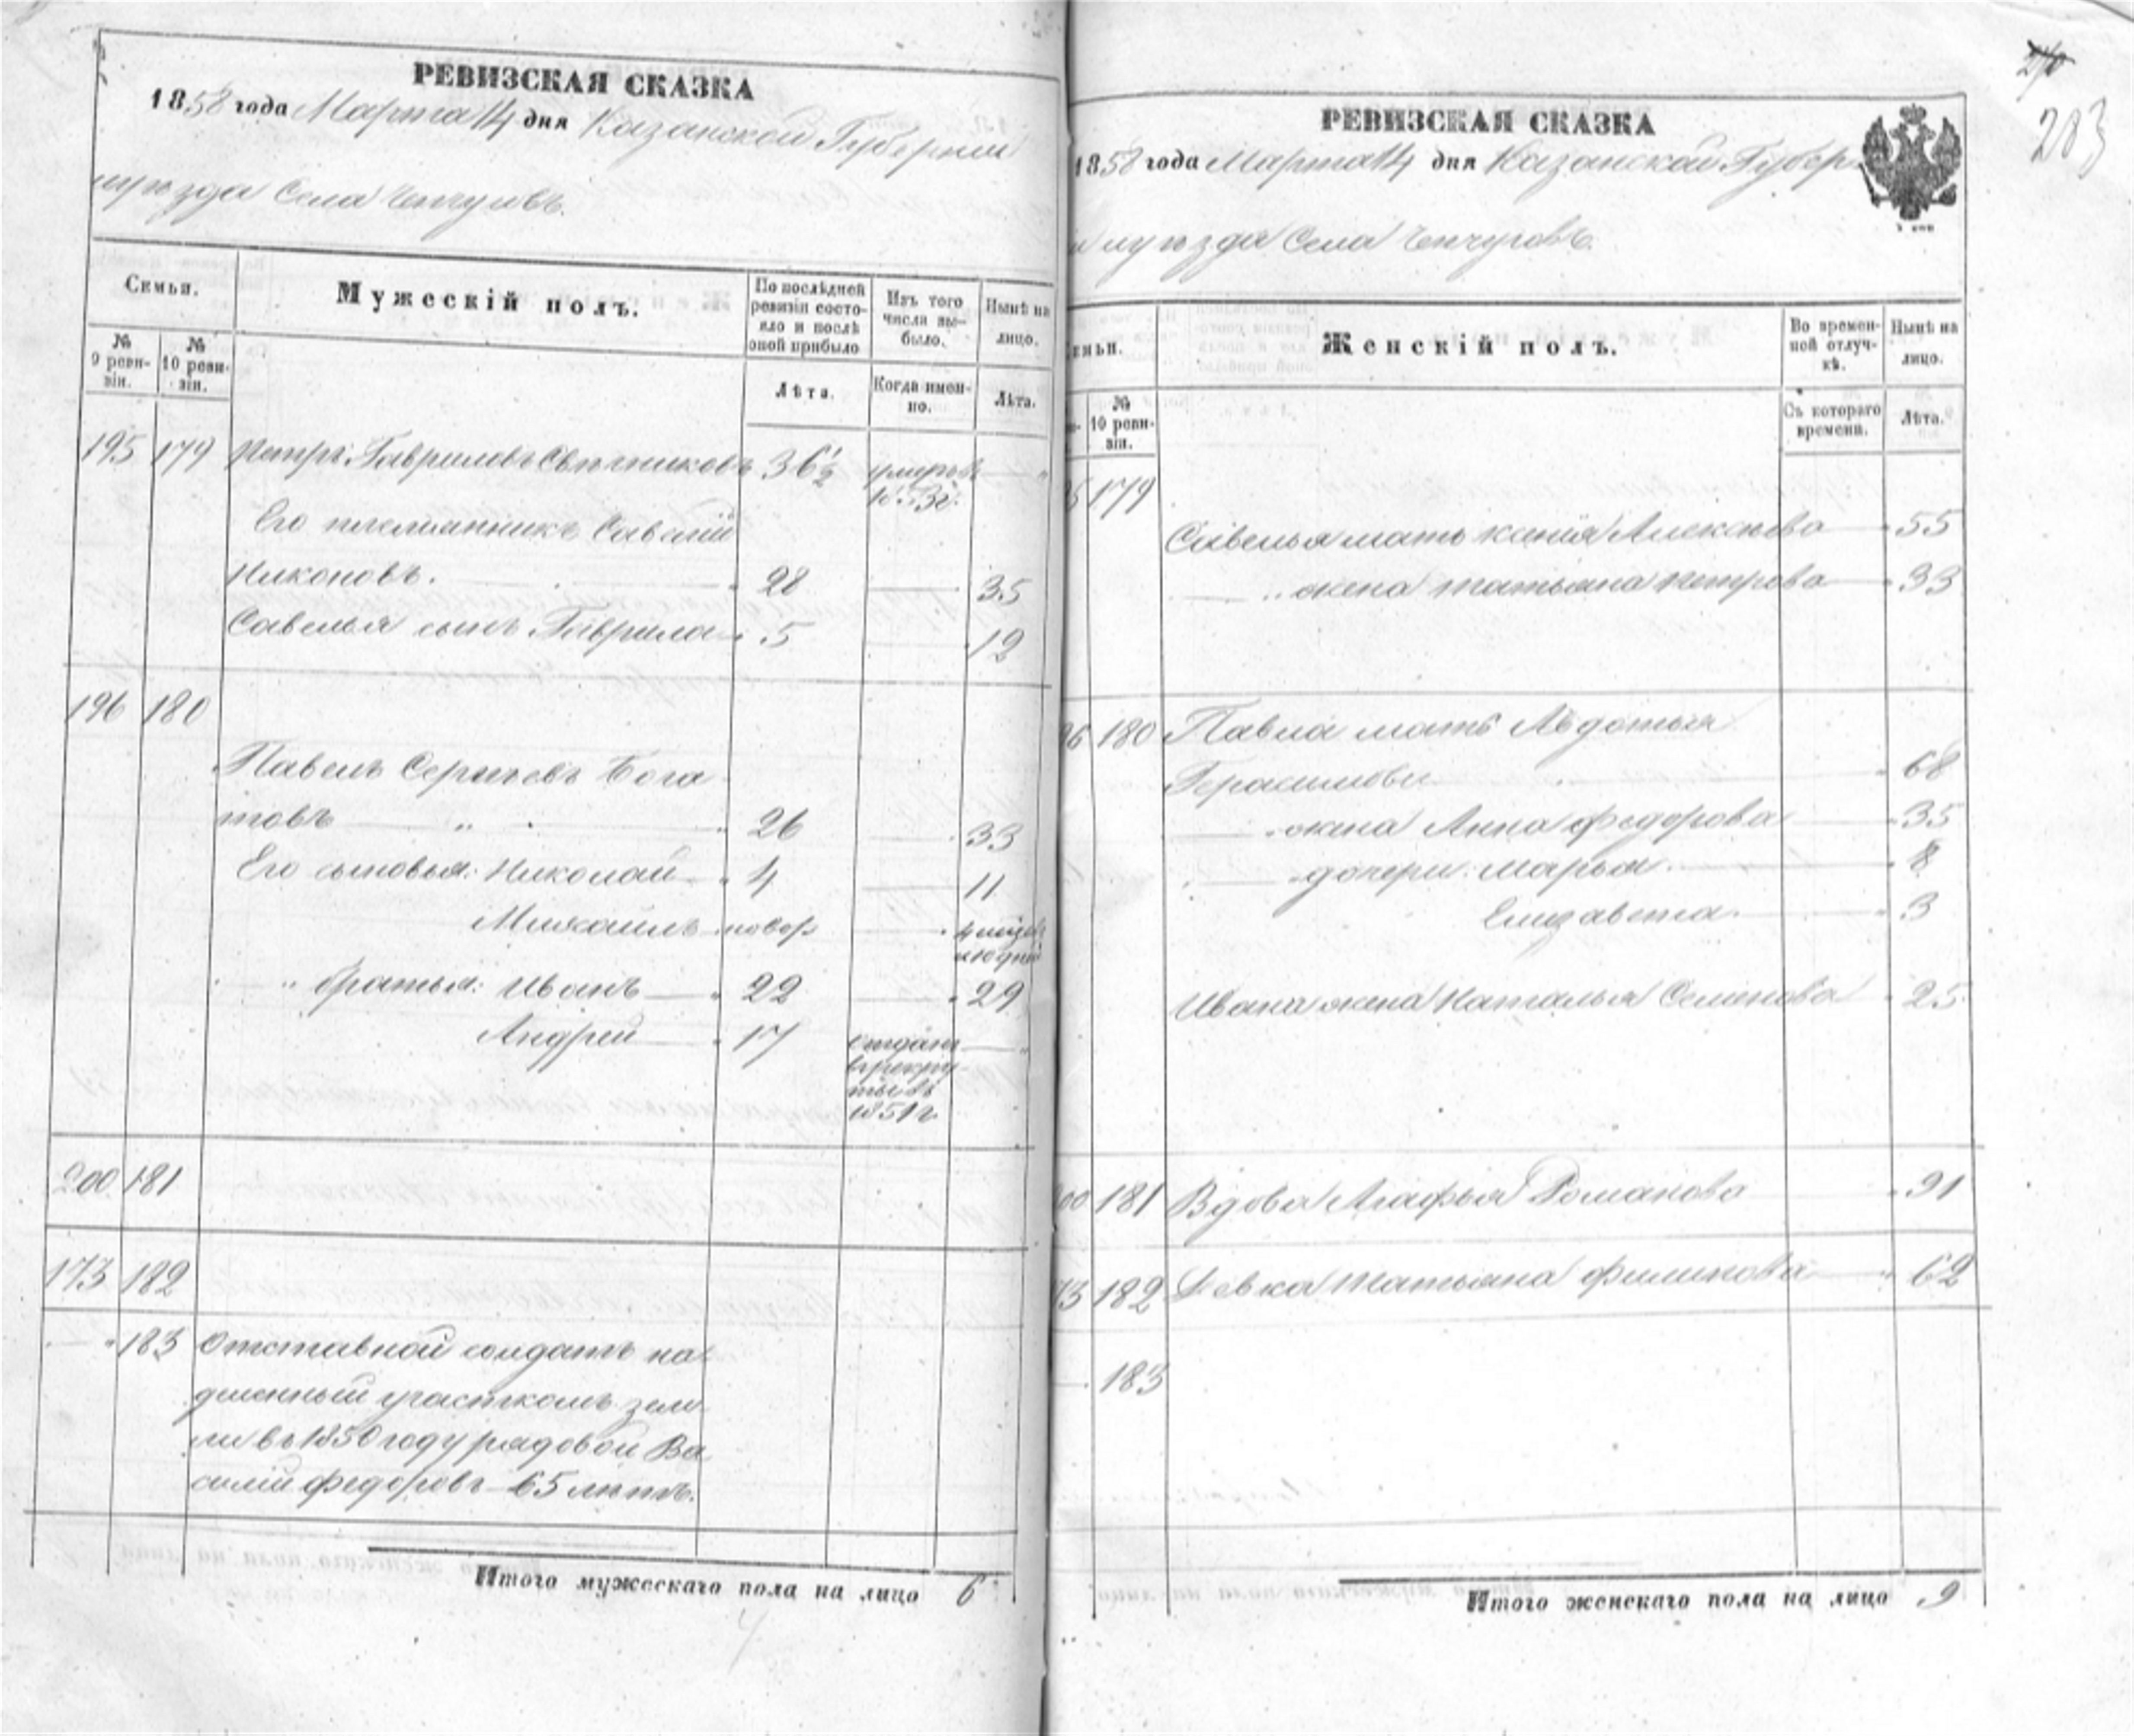 РЕВИЗСКАЯ СКАЗКА
1858 года Марта 14 дня Казанской Губернии
уѣзда Села Чепчуговъ.
Семьи.
Мужескій полъ.
По послѣдней ревизіи состояло и послѣ оной прибыло
Изъ того числа выбыло.
Нынѣ на лицо.
№ 9 ревизіи.
№ 10 ревизіи.
Лѣта.
Когда именно.
Лѣта.
195 179 Петръ Гавриловъ Свѣчниковъ 36½ умеръ въ "
Его племянникъ Савелій
Никоновъ. 28 35
Савелья сынъ Гаврила 5 12
196 180
Павелъ Сергѣевъ Бога
товъ 26 33
Его сыновья: Николай 4 11
Михаилъ новор 4 мѣсяц
" братья: Иванъ 22 29
Андрей 17 отданъ "
въ рекру-
ты въ
1851 г.
200 181
173 182
" 183 Отставной солдатъ на-
дѣленный участкомъ зем-
ли въ 1850 году рядовой Ва
силій Федоровъ 65 лѣтъ.
Итого мужескаго пола на лицо 6
203
РЕВИЗСКАЯ СКАЗКА
1858 года Марта 14 дня Казанской Губер
уѣзда Села Чепчуговъ.
емьи.
Женскій полъ.
Во временной отлучкѣ.
Нынѣ на лицо.
№ 10 ревизіи.
Съ котораго времени.
Лѣта.
5 179
Савелья мать Ксенія Алексѣева 55
" жена Татьяна Петрова 33
96 180 Павла мать Авдотья
Герасимова 68
" жена Анна Федорова 35
" дочери: Марья 8
Елизавета 3
Ивана жена Наталья Семенова 25
00 181 Вдова Агафья Романова 91
73 182 Девка Татьяна Филипова 62
183
Итого женскаго пола на лицо 9